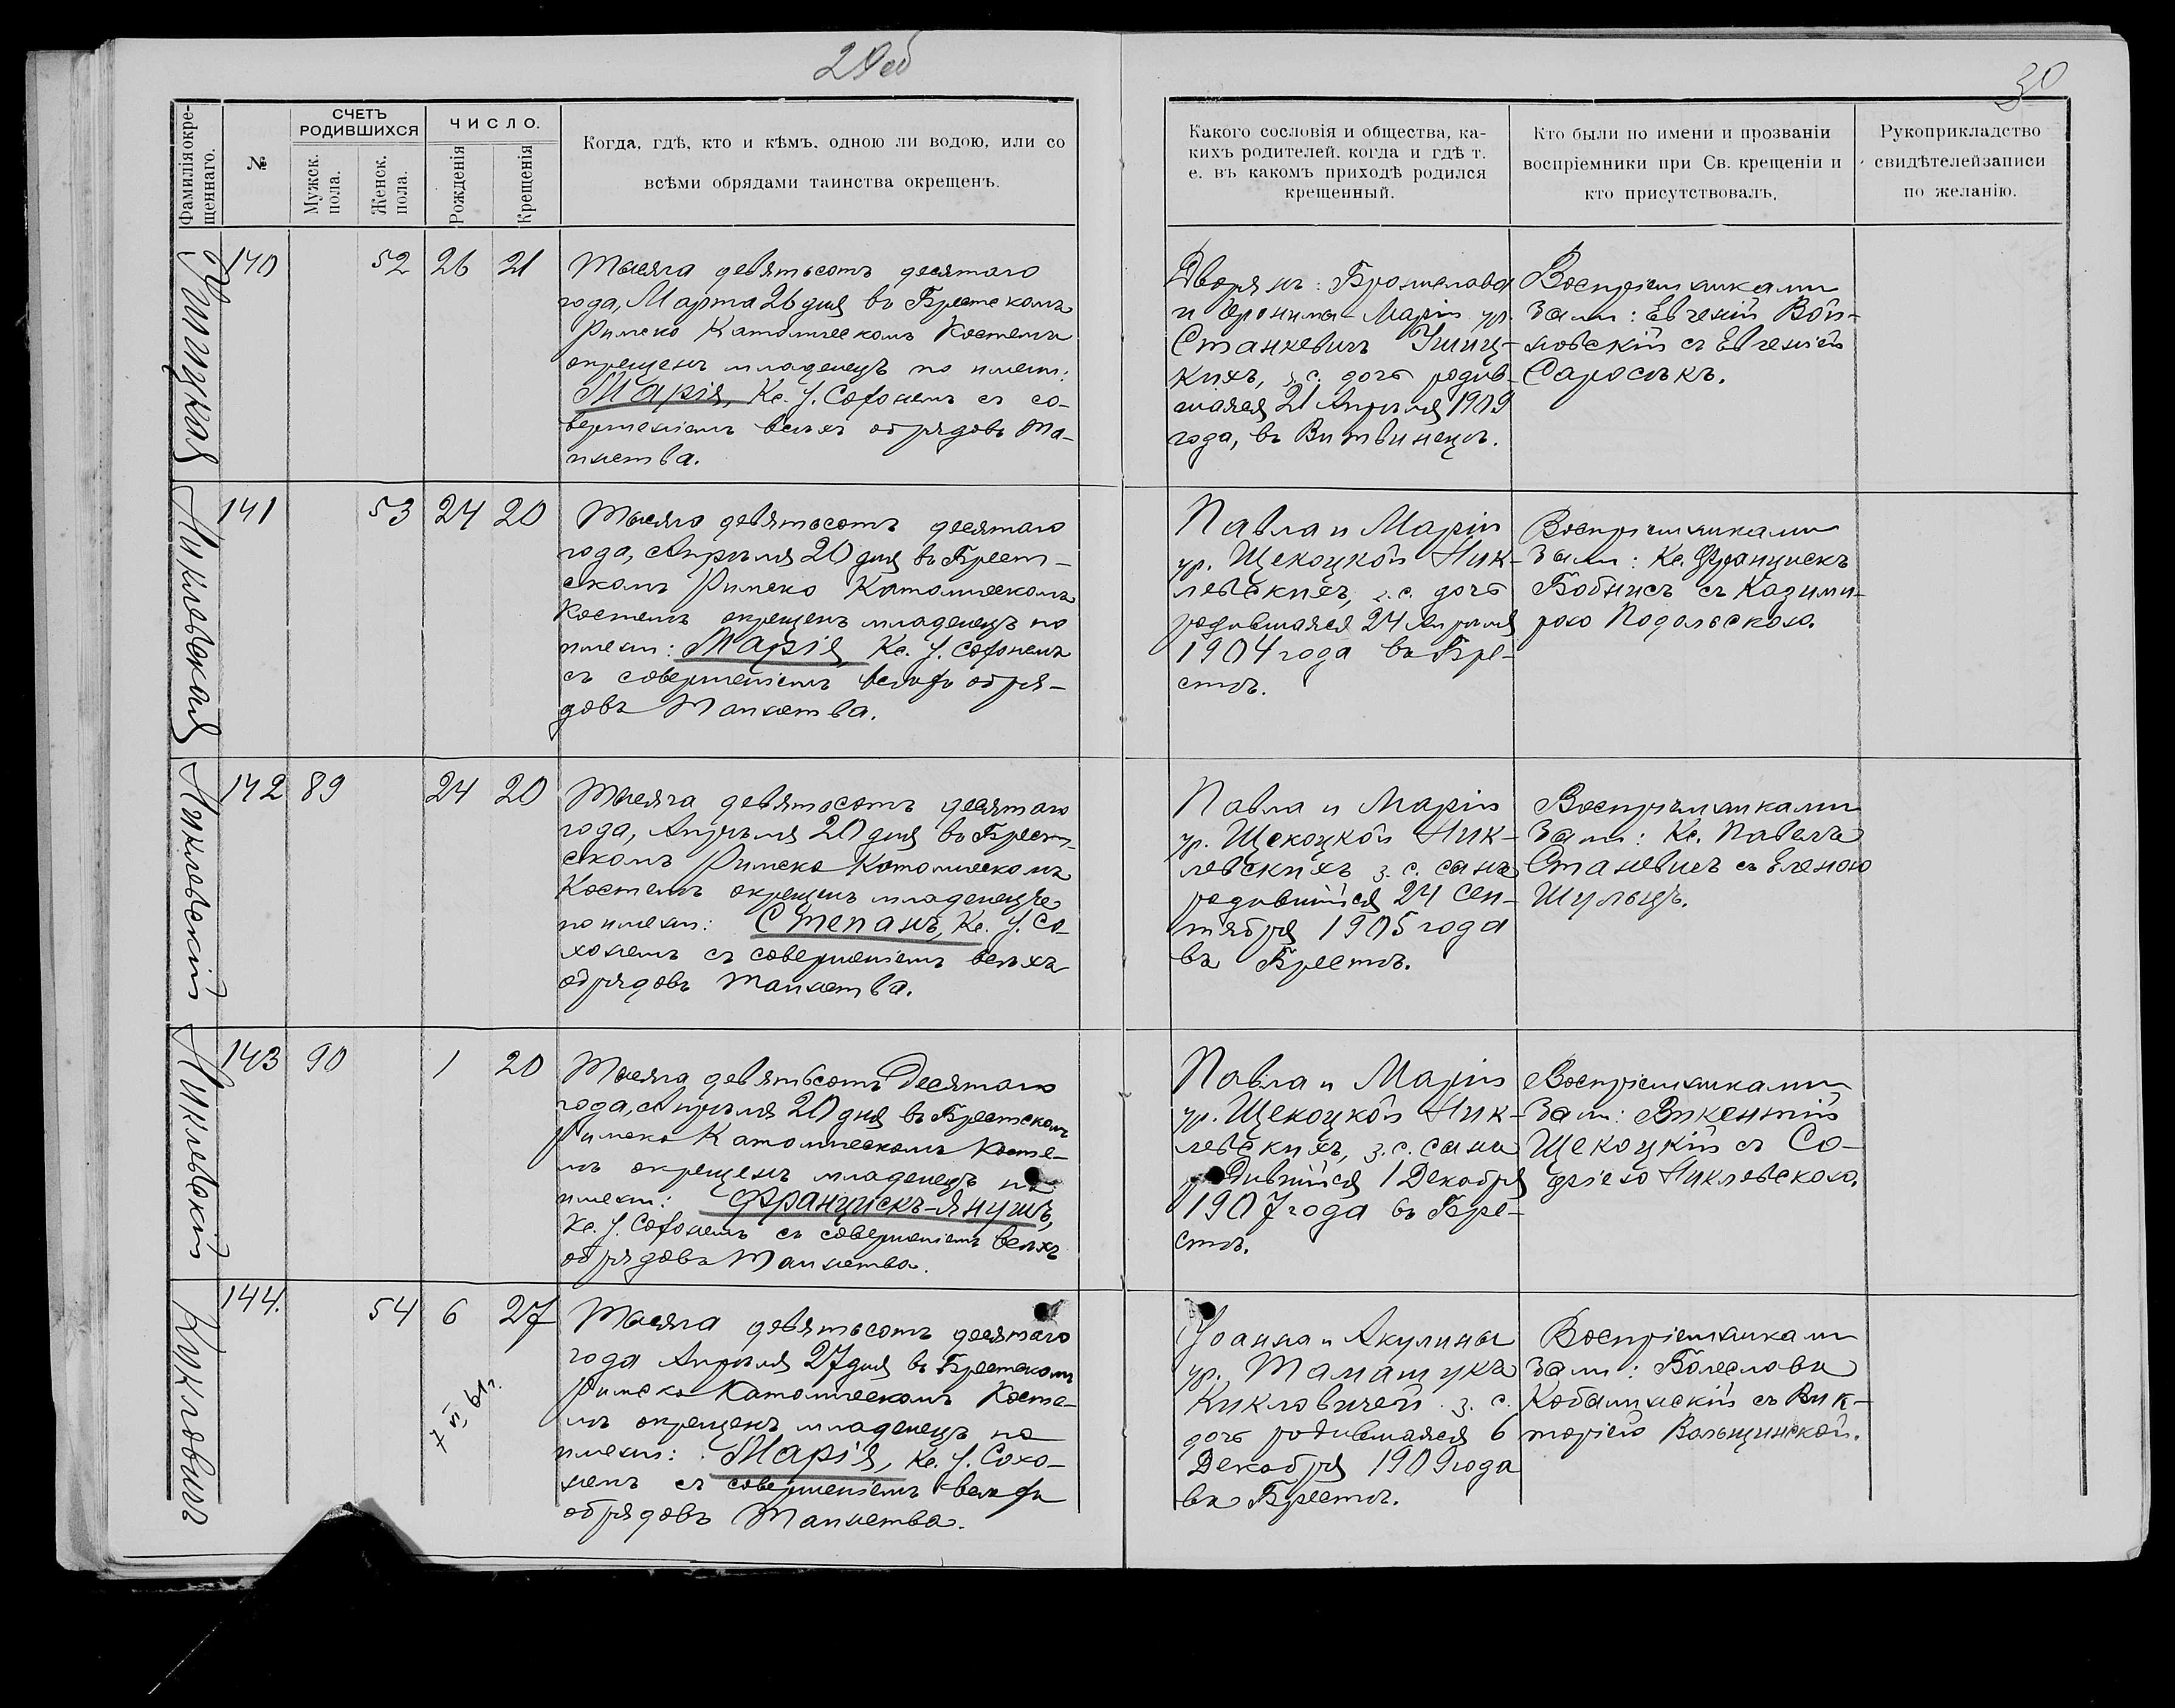 29об
30
Фамилія окре-
щеннаго.
№
СЧЕТЪ
РОДИВШИХСЯ
Мужск.
пола.
Женск.
пола.
ЧИСЛО.
Рожденія
Крещенія
Когда, гдѣ, кто и кѣмъ, одною ли водою, или со
всѣми обрядами таинства окрещенъ.
Какого сословія и общества, ка-
кихъ родителей, когда и гдѣ т.
е. въ какомъ приходѣ родился
крещенный.
Кто были по имени и прозванію
воспріемники при Св. крещеніи и
кто присутствовалъ.
Рукоприкладство
свидѣтелей записи
по желанію.
140
52
26
21
Тысяча девятьсотъ десятаго
года, Марта 26 дня въ Брестскомъ
Римско Католическомъ Костелѣ
окрещенъ младенецъ по имени:
Марія, Кс. І. Сохонемъ съ со-
вершеніемъ всѣхъ обрядовъ Та-
инства.
Дворянъ: Бронислава
и Іеронима-Маріи ур.
Станкевичъ
кихъ, з. с. дочь родив-
шаяся 21 Апрѣля 1909
года, въ
Воспріемниками
были: Евгеній Вой-
новскій съ Евгеніей
Саросѣкъ.
Никлевская
141
53
24
20
Тысяча девятьсотъ десятаго
года, Апрѣля 20 дня въ Брест-
скомъ Римско Католическомъ
Костелѣ окрещенъ младенецъ по
имени: Марія, Кс. І. Сохонемъ
съ совершеніемъ всѣхъ обря-
довъ Таинства.
Павла и Маріи
ур. Щекоцкой Ник-
левскихъ, з. с. дочь
родившаяся 24 Апрѣля
1904 года въ Бре-
стѣ.
Воспріемниками
были: Кс. Францискъ
съ Казими-
рою Подольскою.
Никлевскій
142
89
24
20
Тысяча девятьсотъ десятаго
года, Апрѣля 20 дня въ Брест-
скомъ Римско Католическомъ
Костелѣ окрещенъ младенецъ
по имени: Степанъ, Кс. І. Со-
хонемъ съ совершеніемъ всѣхъ
обрядовъ Таинства.
Павла и Маріи
ур. Щекоцкой Ник-
левскихъ з. с. сынъ
родившійся 24 Сен-
тября 1905 года
въ Брестѣ.
Воспріемниками
были: Кс. Павелъ
Станевичъ съ Еленою
Шульцъ.
Никлевскій
143
90
1
20
Тысяча девятьсотъ десятаго
года, Апрѣля 20 дня въ Брестскомъ
Римско Католическомъ Косте-
лѣ окрещенъ младенецъ по
имени: Францискъ-Янушъ,
Кс. І. Сохонемъ съ совершеніемъ всѣхъ
обрядовъ Таинства.
Павла и Маріи
ур. Щекоцкой Ник-
левскихъ, з. с. сынъ
родившійся 1 Декабря
1907 года въ Бре-
стѣ.
Воспріемниками
были: Викентій
Щекоцкій съ Со-
фіею Никлевскою.
Кикловичъ
144.
54
6
27
Тысяча девятьсотъ десятаго
года Апрѣля 27 дня въ Брестскомъ
Римско Католическомъ Косте-
лѣ окрещенъ младенецъ по
имени: Марія, Кс. І. Сохо-
немъ съ совершеніемъ всѣхъ
обрядовъ Таинства.
Іоанна и Акулины
ур. Таматукъ
Кикловичей з. с.
дочь родившаяся 6
Декабря 1909 года
въ Брестѣ.
Воспріемниками
были: Болеславъ
Кобылинскій съ Вик-
торіею Вольщинской.